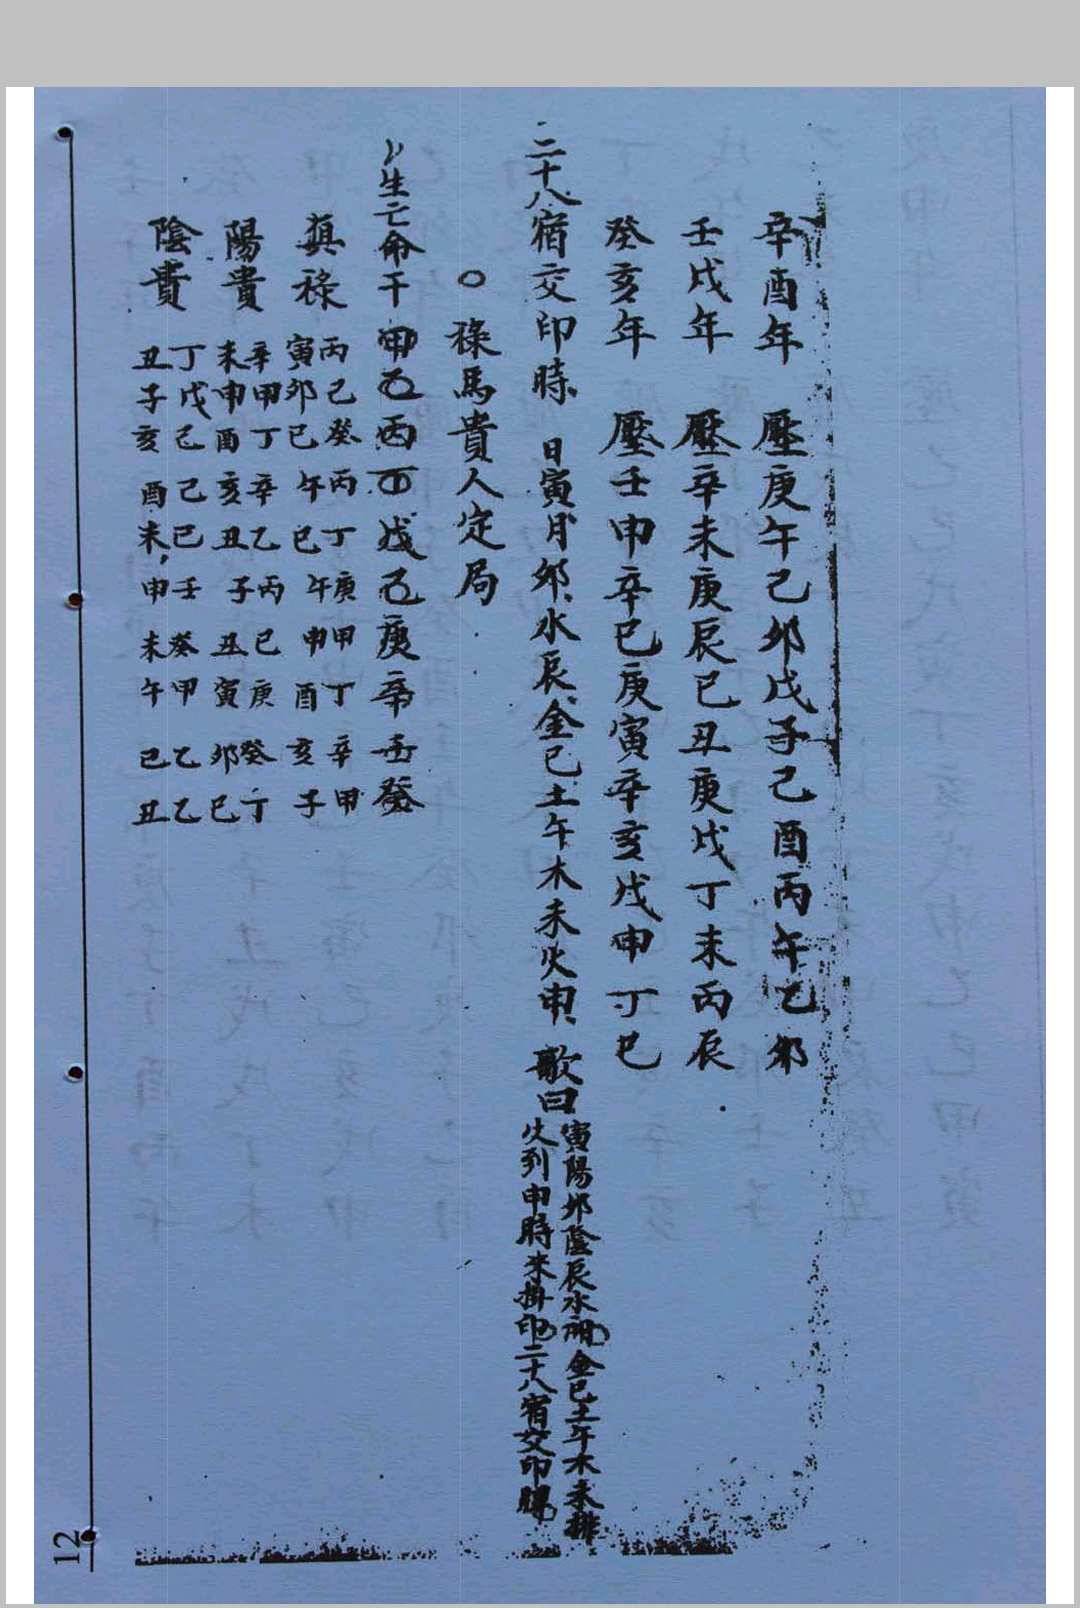 辛酉年 壓庚午己卯戊子己酉丙午乙卯
壬戌年 壓辛未庚辰己丑庚戌丁未丙辰
癸亥年 壓壬申辛巳庚寅辛亥戊申丁巳
二十八宿交印時 日寅月卯水辰金巳土午木未火申 歌曰
寅陽卯陰辰水 金巳土午木未排
火列申時來掛印 二十八宿交印
○祿馬貴人定局
生亡命干 甲乙丙丁戊己庚辛壬癸
真祿
丙己癸丙丁庚甲丁辛甲
寅卯巳午巳午申酉亥子
陽貴
辛甲丁辛乙丙己庚癸丁
未申酉亥丑子丑寅卯巳
陰貴
丁戊己己己壬癸甲乙乙
丑子亥酉未申未午巳丑
12